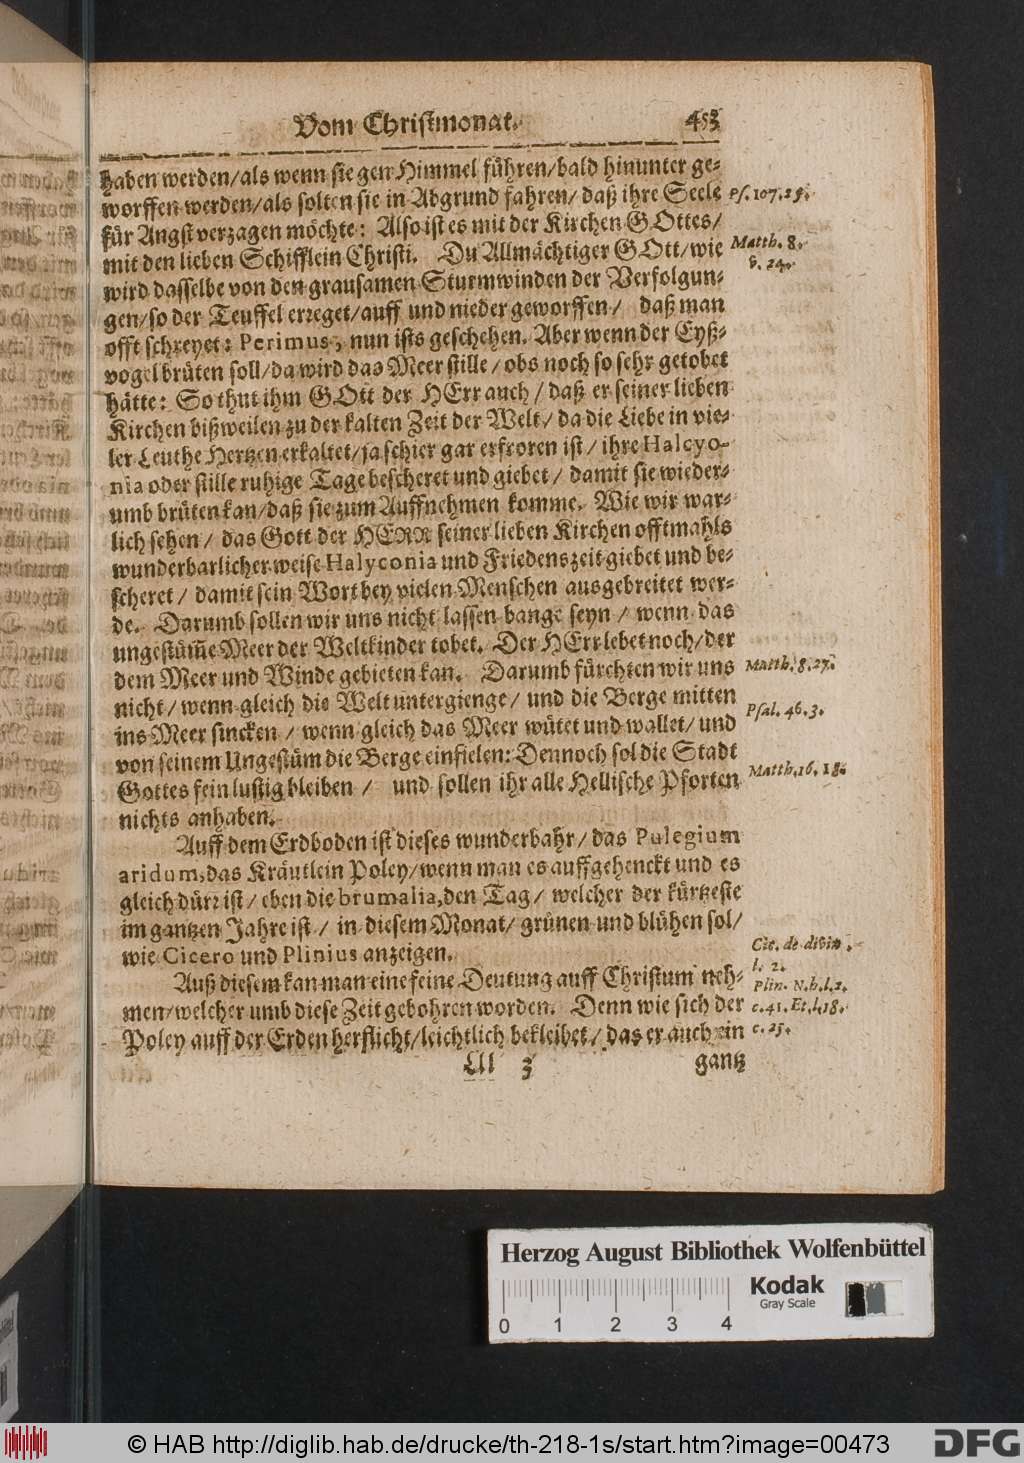 Vom Christmonat. 453
haben werden/als wenn sie gen Himmel führen/bald hinunter ge-
worffen werden/als solten sie in Abgrund fahren/ daß ihre Seele
für Angst verzagen möchte: Also ist es mit der Kirchen GOttes/
mit den lieben Schifflein Christi. Du Allmächtiger GOtt/wie
wird dasselbe von den grausamen Sturmwinden der Verfolgun-
gen/so der Teuffel erreget/auff und nieder geworffen/ daß man
offt schreyet: Perimus, nun ists geschehen. Aber wenn der Eyß-
vogel brüten soll/da wird das Meer stille/obs noch so sehr getobet
hätte: So thut ihm GOtt der HErr auch/ daß er seiner lieben
Kirchen bißweilen zu der kalten Zeit der Welt/ da die Liebe in vie-
ler Leuthe Hertzen erkaltet/ja schier gar erfroren ist/ ihre Halcyo-
nia oder stille ruhige Tage bescheret und giebet/ damit sie wieder-
umb brüten kan/daß sie zum Auffnehmen komme. Wie wir war-
lich sehen/ das Gott der HERR seiner lieben Kirchen offtmahls
wunderbarlicher weise Halyconia und Friedenszeit giebet und be-
scheret/ damit sein Wort bey vielen Menschen ausgebreitet wer-
de. Darumb sollen wir uns nicht lassen bange seyn/ wenn das
ungestüm̃e Meer der Weltkinder tobet. Der HErr lebet noch/der
dem Meer und Winde gebieten kan. Darumb fürchten wir uns
nicht/wenn gleich die Welt untergienge/ und die Berge mitten
ins Meer sincken/ wenn gleich das Meer wütet und wallet/ und
von seinem Ungestüm die Berge einfielen: Dennoch sol die Stadt
Gottes fein lustig bleiben/ und sollen ihr alle Hellische Pforten
nichts anhaben.
Auff dem Erdboden ist dieses wunderbahr/ das Pulegium
aridum, das Kräutlein Poley/wenn man es auffgehenckt und es
gleich dürr ist/ eben die brumalia, den Tag/ welcher der kürtzeste
im gantzen Jahre ist/ in diesem Monat/ grünen und blühen sol/
wie Cicero und Plinius anzeigen.
Auß diesem kan man eine feine Deutung auff Christum neh-
men/welcher umb diese Zeit gebohren worden. Denn wie sich der
Poley auff der Erden herflicht/leichtlich bekleibet/ das er auch ein
Lll 3 gantz
Ps. 107. 25.
Matth. 8.
v. 24.
Matth. 8. 27.
Psal. 46. 3.
Matth. 16. 18.
Cic. de divin.
l. 2.
Plin. N. h. l. 2.
c. 41. Et. l. 18.
c. 25.
Herzog August Bibliothek Wolfenbüttel
Kodak
Gray Scale
0 1 2 3 4
© HAB http://diglib.hab.de/drucke/th-218-1s/start.htm?image=00473
DFG